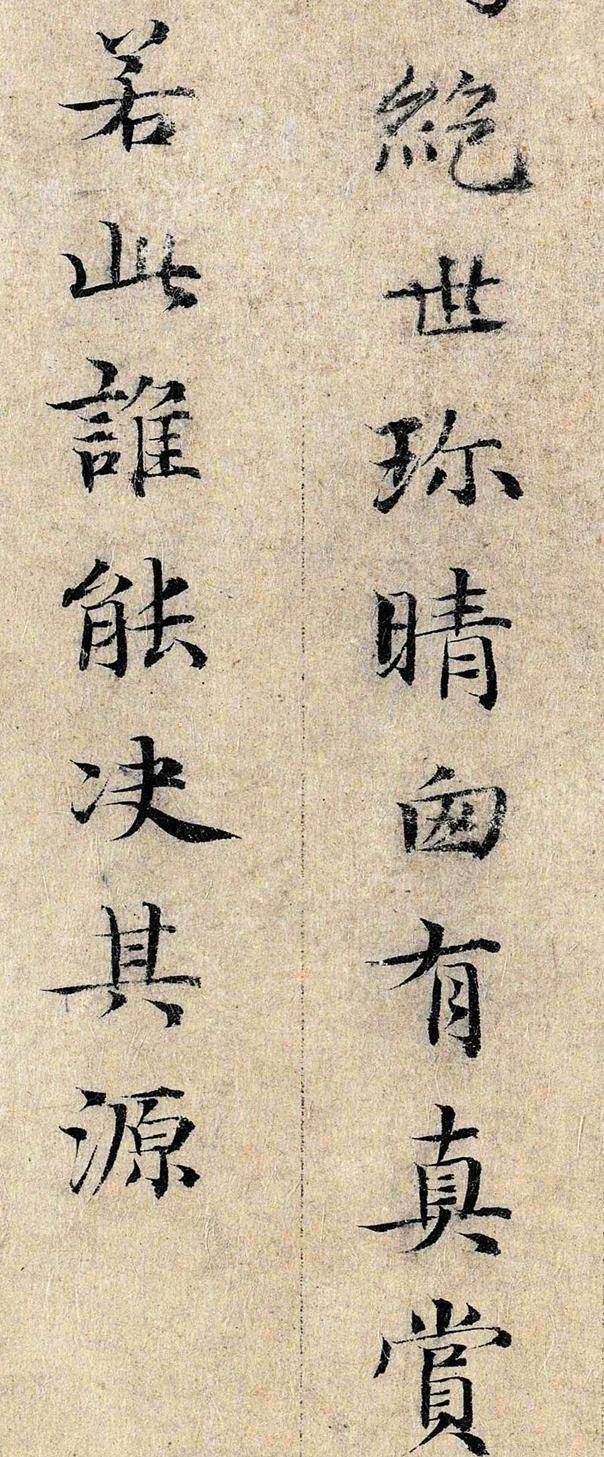 絶世珎晴囪有真賞
若此誰能决其源